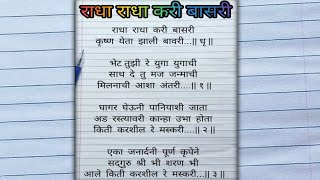 राधा राधा करी बासरी
राधा राधा करी बासरी
कृष्ण येता झाली बावरी...॥ धृ ॥
भेट तुझी रे युगा युगाची
साथ दे तु मज जन्माची
मिलनाची आशा अंतरी....॥ १ ॥
घागर घेऊनी पानियाशी जाता
अड रस्त्यावरी कान्हा उभा होता
किती करशील रे मस्करी....॥ २ ॥
एका जनार्दनी पूर्ण कृपेने
सद्गुरु श्री भी शरण भी
आले किती करशील रे मस्करी...॥ ३ ॥